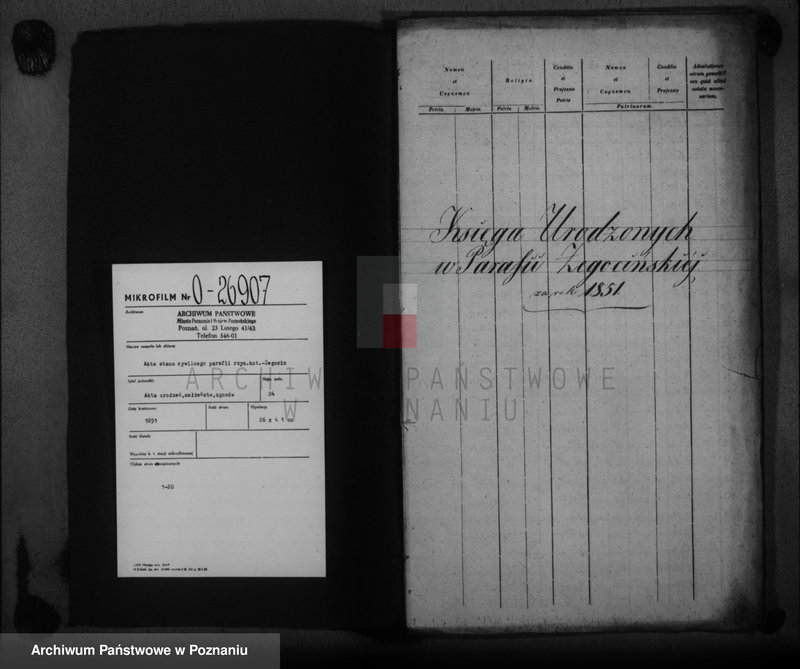 MIKROFILM Nr O-26907
Archiwum
ARCHIWUM PAŃSTWOWE
Miasta Poznania i Wojew. Poznańskiego
Poznań, ul. 23 Lutego 41/43
Telefon 546-01
Nazwa zespołu lub zbioru:
Akta stanu cywilnego parafii rzym.kat.-Żegocin
Tytuł jednostki:
Akta urodzeń,małżeństw,zgonów
24
Daty krańcowe:
1851
Ilość stron
Wymiary
26 x 41 cm
Ilość klatek:
1-20
Nomen et Cognomen
Religio
Conditio et Professio Patris
Nomen et Cognomen.
Conditio et Professio
Patrinorum.
Patris. Matris. Patris. Matris.
Księga Urodzonych
w Parafii Żegocińskiéj
za rok 1851.
ARCHIWUM PAŃSTWOWE
W POZNANIU
Archiwum Państwowe w Poznaniu